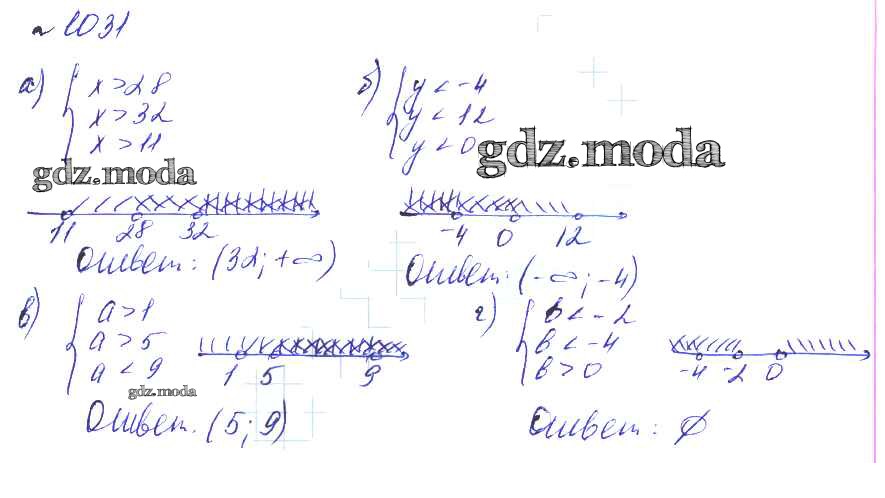 № 1031
а) { x > 28
x > 32
x > 11
gdz.moda
11 28 32
Ответ: (32; +∞)
б) { y < -4
y < 12
y < 0
gdz.moda
-4 0 12
Ответ: (-∞; -4)
в) { a > 1
a > 5
a < 9
gdz.moda
1 5 9
Ответ: (5; 9)
г) { b < -2
b < -4
b > 0
-4 -2 0
Ответ: ∅